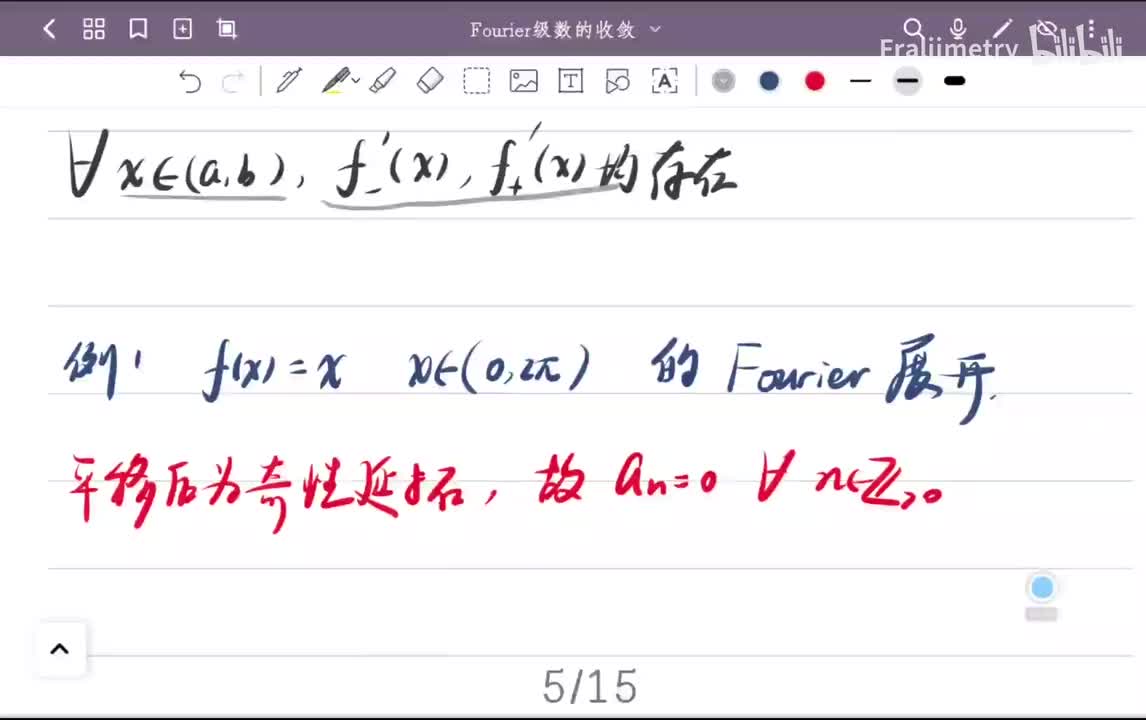 Fourier级数的收敛
Fraliimetry bilibili
∀ x∈(a,b), f₋'(x), f₊'(x) 均存在
例: f(x)=x x∈(0,2π) 的 Fourier 展开.
平移后为奇性延拓, 故 aₙ=0 ∀ n∈ℤ>0
5/15